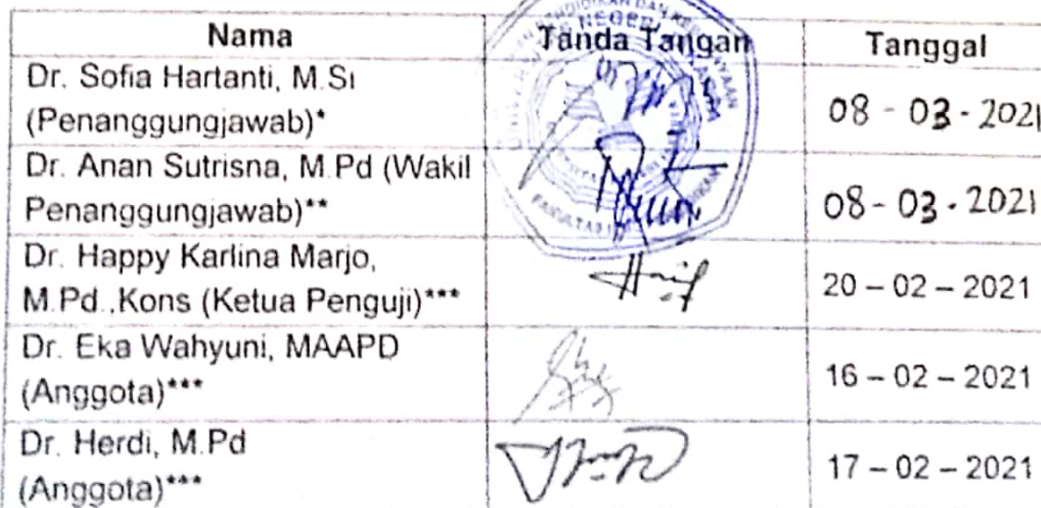 Nama Tanda Tangan Tanggal
Dr. Sofia Hartanti, M.Si
(Penanggungjawab)*
08 - 03 - 2021
Dr. Anan Sutrisna, M.Pd (Wakil
Penanggungjawab)**
08 - 03 - 2021
Dr. Happy Karlina Marjo,
M.Pd.,Kons (Ketua Penguji)***
20 – 02 – 2021
Dr. Eka Wahyuni, MAAPD
(Anggota)***
16 – 02 – 2021
Dr. Herdi, M.Pd
(Anggota)***
17 – 02 – 2021
NEGERI
FAKULTAS